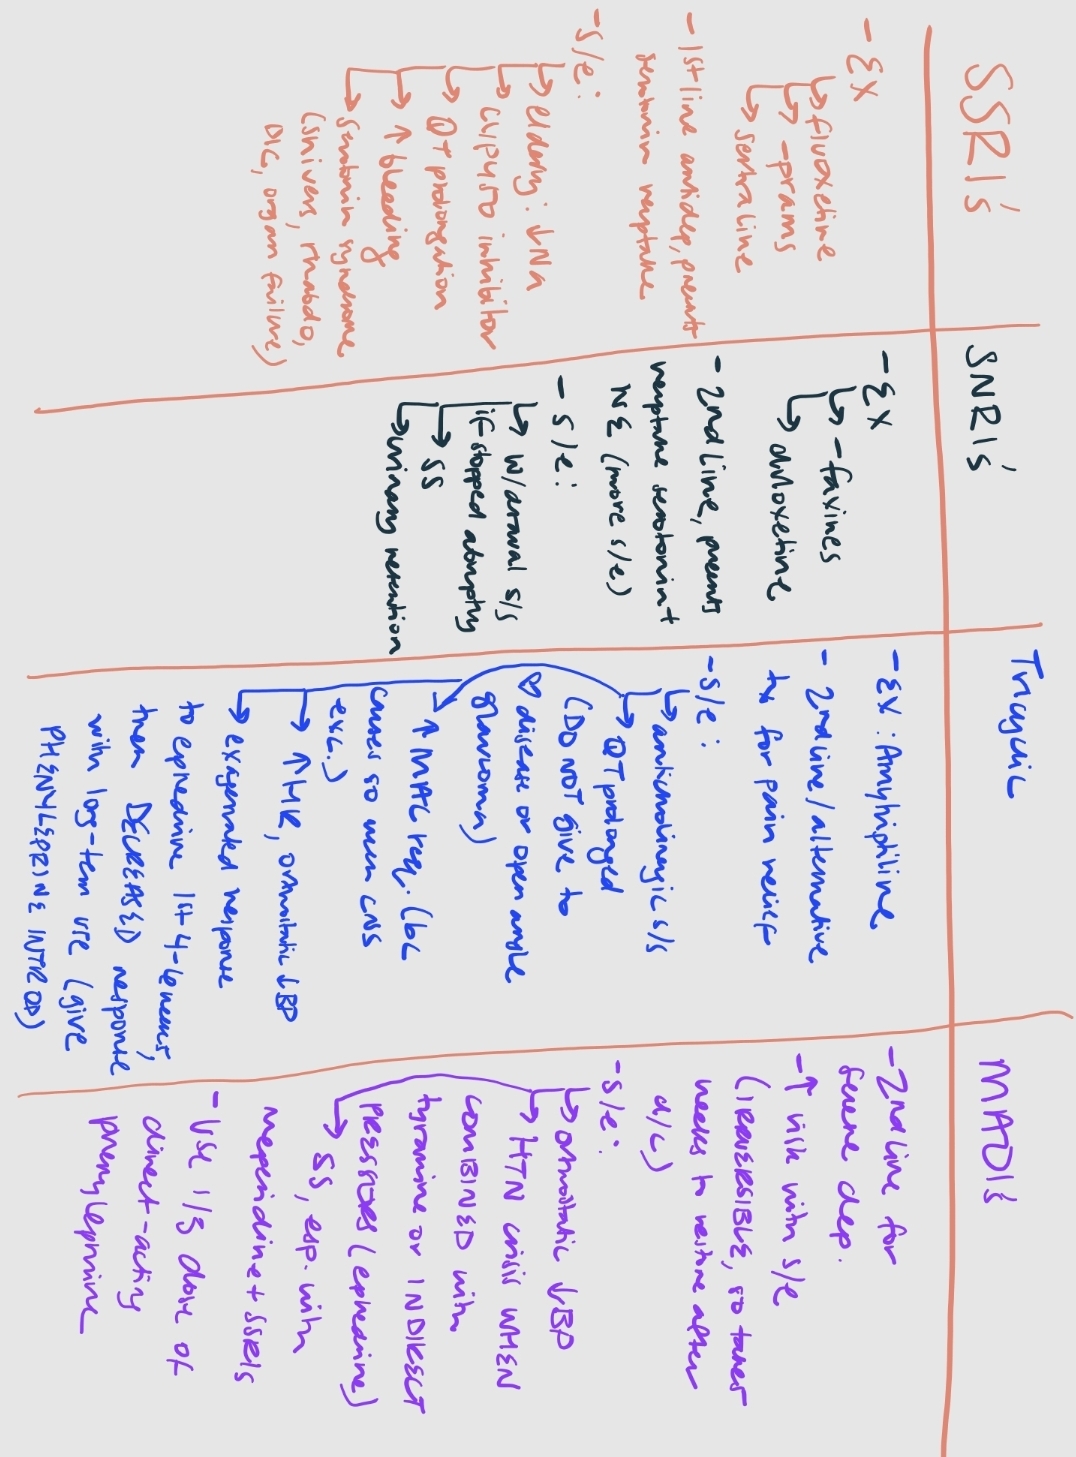 SSRI's
- EX
↳ fluoxetine
↳ -prams
↳ sertraline
- 1st line antidep, prevent
serotonin reuptake
- S/e:
↳ elderly: ↓Na
↳ CYP450 inhibitor
↳ QT prolongation
↳ ↑ bleeding
↳ serotonin syndrome
(shivers, rhabdo,
DIC, organ failure)
SNRIs'
- EX
↳ -faxines
↳ duloxetine
- 2nd line, prevents
reuptake serotonin +
NE (more s/e)
- S/e:
↳ w/drawal s/s
if stopped abruptly
↳ SS
↳ urinary retention
Tricyclic
- EX: Amytriptiline
- 2nd line/alternative
tx for pain relief
- S/e:
↳ anticholinergic s/s
↳ QT prolonged
(DO NOT give to
♡ disease or open angle
glaucoma)
↑ MAC req. (bc
causes so much CNS
exc.)
↳ ↑HR, orthostatic ↓BP
↳ exagerated response
to ephedrine 1st 4-6 weeks,
then DECREASED response
with log-term use (give
PHENYLEPRINE INTROP)
MAOIs
- 2nd line for
severe dep.
- ↑ risk with s/e
(IRREVERSIBLE, so takes
weeks to restore after
d/c)
- S/e:
↳ orthostatic ↓BP
↳ HTN crisis WHEN
COMBINED with
tyramine or INDIRECT
PRESSORS (ephedrine)
↳ SS, esp. with
meperidine + SSRIs
- Use 1/3 dose of
direct-acting
phenylephrine